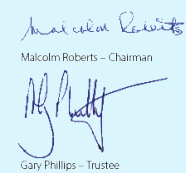 Malcolm Roberts
Malcolm Roberts – Chairman
Gary Phillips – Trustee